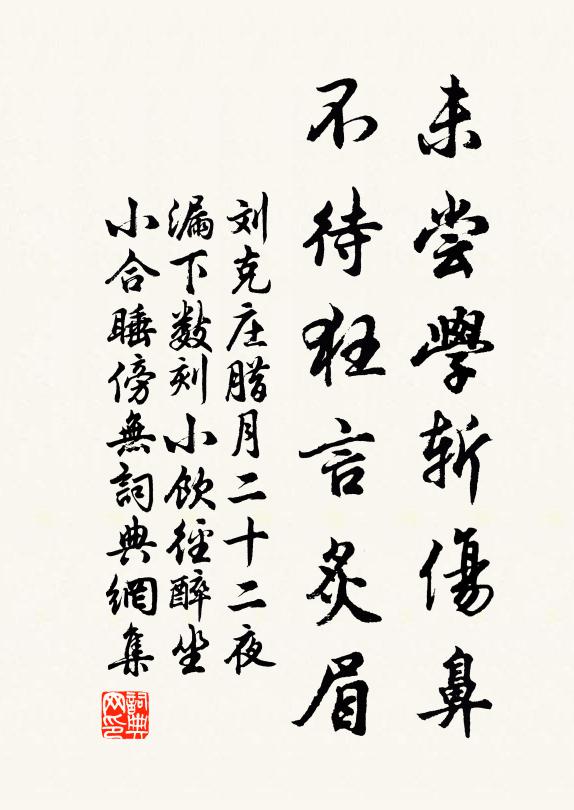 未尝學斩傷鼻
不待狂言炙眉
刘克庄腊月二十二夜
漏下数刻小飲徑醉坐
小合睡傍無詞典網集
詞典网印